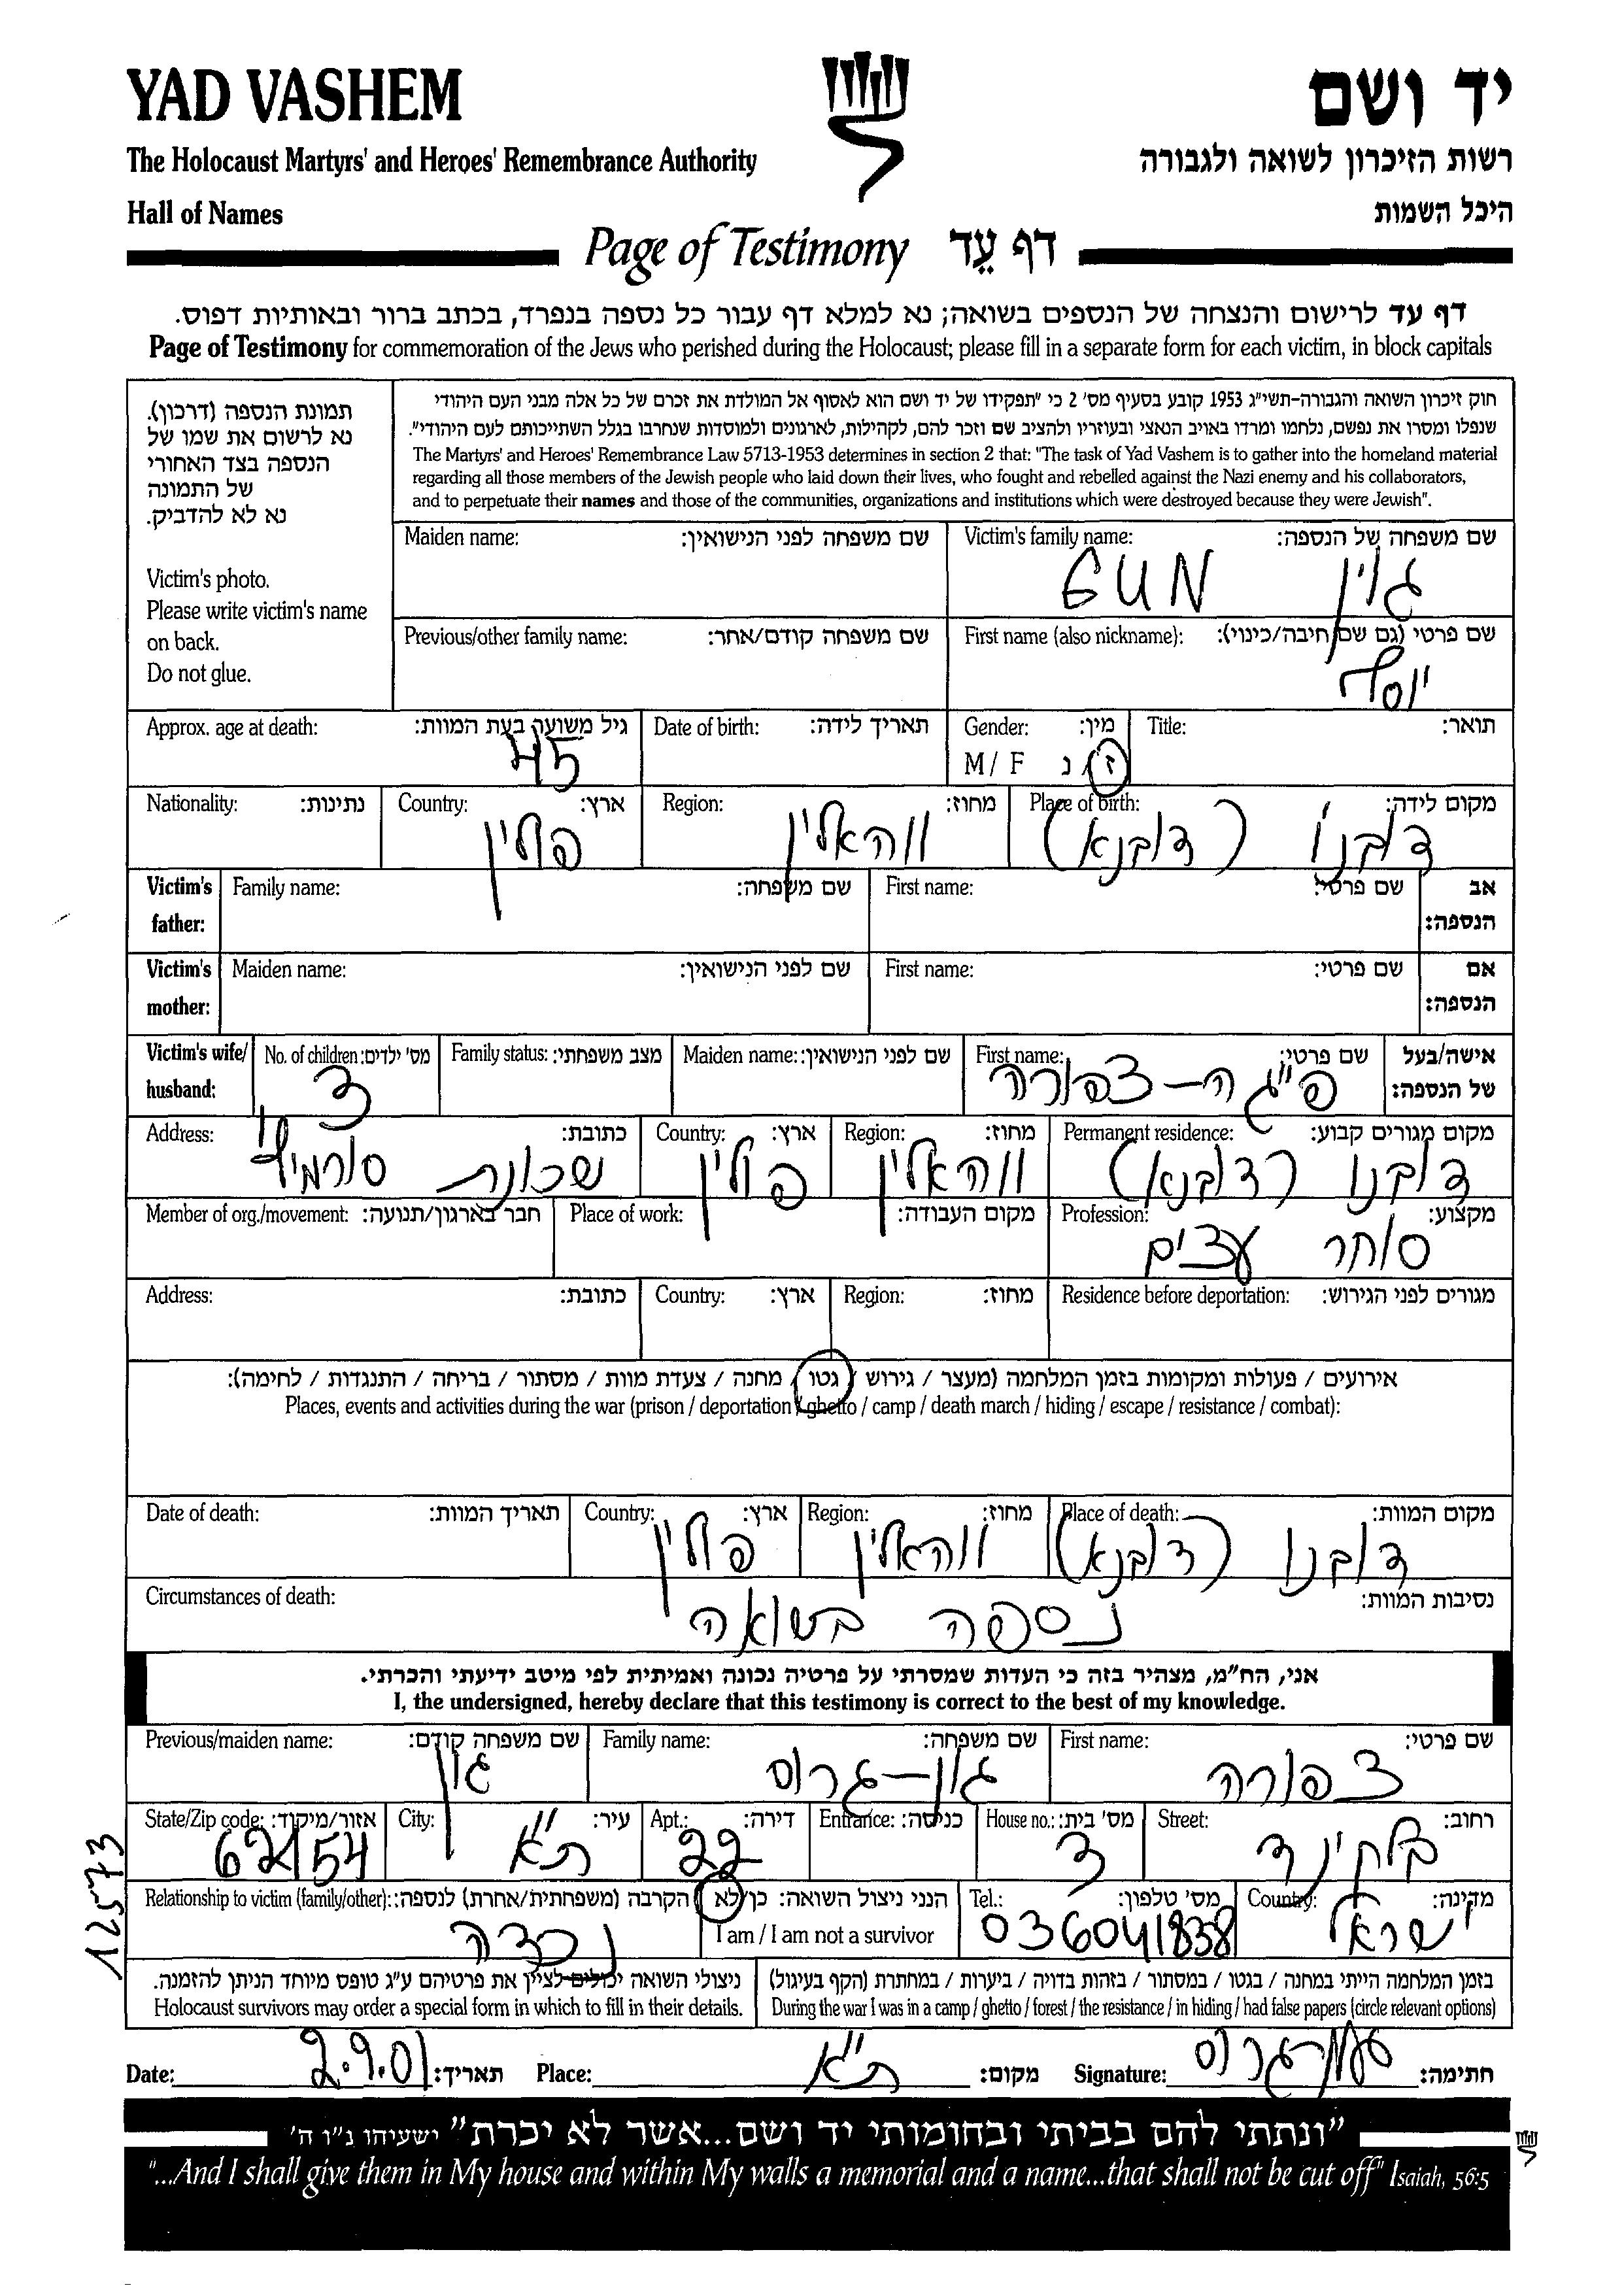 YAD VASHEM יד ושם
The Holocaust Martyrs' and Heroes' Remembrance Authority רשות הזיכרון לשואה ולגבורה
Hall of Names היכל השמות
Page of Testimony דף עֵד
דף עד לרישום והנצחה של הנספים בשואה; נא למלא דף עבור כל נספה בנפרד, בכתב ברור ובאותיות דפוס.
Page of Testimony for commemoration of the Jews who perished during the Holocaust; please fill in a separate form for each victim, in block capitals
תמונת הנספה (דרכון).
נא לרשום את שמו של
הנספה בצד האחורי
של התמונה
נא לא להדביק.
Victim's photo.
Please write victim's name
on back.
Do not glue.
חוק זיכרון השואה והגבורה-תשי"ג 1953 קובע בסעיף מס' 2 כי "תפקידו של יד ושם הוא לאסוף אל המולדת את זכרם של כל אלה מבני העם היהודי
שנפלו ומסרו את נפשם, נלחמו ומרדו באויב הנאצי ובעוזריו ולהציב שם וזכר להם, לקהילות, לארגונים ולמוסדות שנחרבו בגלל השתייכותם לעם היהודי".
The Martyrs' and Heroes' Remembrance Law 5713-1953 determines in section 2 that: "The task of Yad Vashem is to gather into the homeland material
regarding all those members of the Jewish people who laid down their lives, who fought and rebelled against the Nazi enemy and his collaborators,
and to perpetuate their names and those of the communities, organizations and institutions which were destroyed because they were Jewish".
Maiden name: שם משפחה לפני הנישואין: Victim's family name: שם משפחה של הנספה:
GUN גוין
Previous/other family name: שם משפחה קודם/אחר: First name (also nickname): שם פרטי (גם שם חיבה/כינוי):
יוסף
Approx. age at death: גיל משוער בעת המוות: Date of birth: תאריך לידה: Gender: מין: Title: תואר:
45 M / F ז / נ
Nationality: נתינות: Country: ארץ: Region: מחוז: Place of birth: מקום לידה:
פולין ווהאלין דובנו (דובנא)
Victim's father: Family name: שם משפחה: First name: שם פרטי: אב הנספה:
Victim's mother: Maiden name: שם לפני הנישואין: First name: שם פרטי: אם הנספה:
Victim's wife/ husband: No. of children: מס' ילדים: Family status: מצב משפחתי: Maiden name: שם לפני הנישואין: First name: שם פרטי: אישה/בעל של הנספה:
3 פייגה-צפורה
Address: כתובת: Country: ארץ: Region: מחוז: Permanent residence: מקום מגורים קבוע:
שכונת פולין ווהאלין דובנו (דובנא)
Member of org./movement: חבר בארגון/תנועה: Place of work: מקום העבודה: Profession: מקצוע:
סוחר עצים
Address: כתובת: Country: ארץ: Region: מחוז: Residence before deportation: מגורים לפני הגירוש:
אירועים / פעולות ומקומות בזמן המלחמה (מעצר / גירוש / גטו / מחנה / צעדת מוות / מסתור / בריחה / התנגדות / לחימה):
Places, events and activities during the war (prison / deportation / ghetto / camp / death march / hiding / escape / resistance / combat):
Date of death: תאריך המוות: Country: ארץ: Region: מחוז: Place of death: מקום המוות:
פולין ווהאלין דובנו (דובנא)
Circumstances of death: נסיבות המוות:
נספה בשואה
אני, הח"מ, מצהיר בזה כי העדות שמסרתי על פרטיה נכונה ואמיתית לפי מיטב ידיעתי והכרתי.
I, the undersigned, hereby declare that this testimony is correct to the best of my knowledge.
Previous/maiden name: שם משפחה קודם: Family name: שם משפחה: First name: שם פרטי:
גון גון-גרוס צפורה
State/Zip code: אזור/מיקוד: City: עיר: Apt.: דירה: Entrance: כניסה: House no.: מס' בית: Street: רחוב:
62154 ת"א 22 3 בלקינד
Relationship to victim (family/other): הקרבה (משפחתית/אחרת) לנספה: הנני ניצול השואה: כן/לא Tel.: מס' טלפון: Country: מדינה:
I am / I am not a survivor
נכדה 036041838 ישראל
12573
ניצולי השואה יכולים לציין את פרטיהם ע"ג טופס מיוחד הניתן להזמנה. בזמן המלחמה הייתי במחנה / בגטו / במסתור / בזהות בדויה / ביערות / במחתרת (הקף בעיגול)
Holocaust survivors may order a special form in which to fill in their details. During the war I was in a camp / ghetto / forest / the resistance / in hiding / had false papers (circle relevant options)
Date: 2.9.01 תאריך: Place: ת"א מקום: Signature: חתימה:
"ונתתי להם בביתי ובחומותי יד ושם...אשר לא יכרת" ישעיהו נ"ו ה'
"...And I shall give them in My house and within My walls a memorial and a name...that shall not be cut off" Isaiah, 56:5